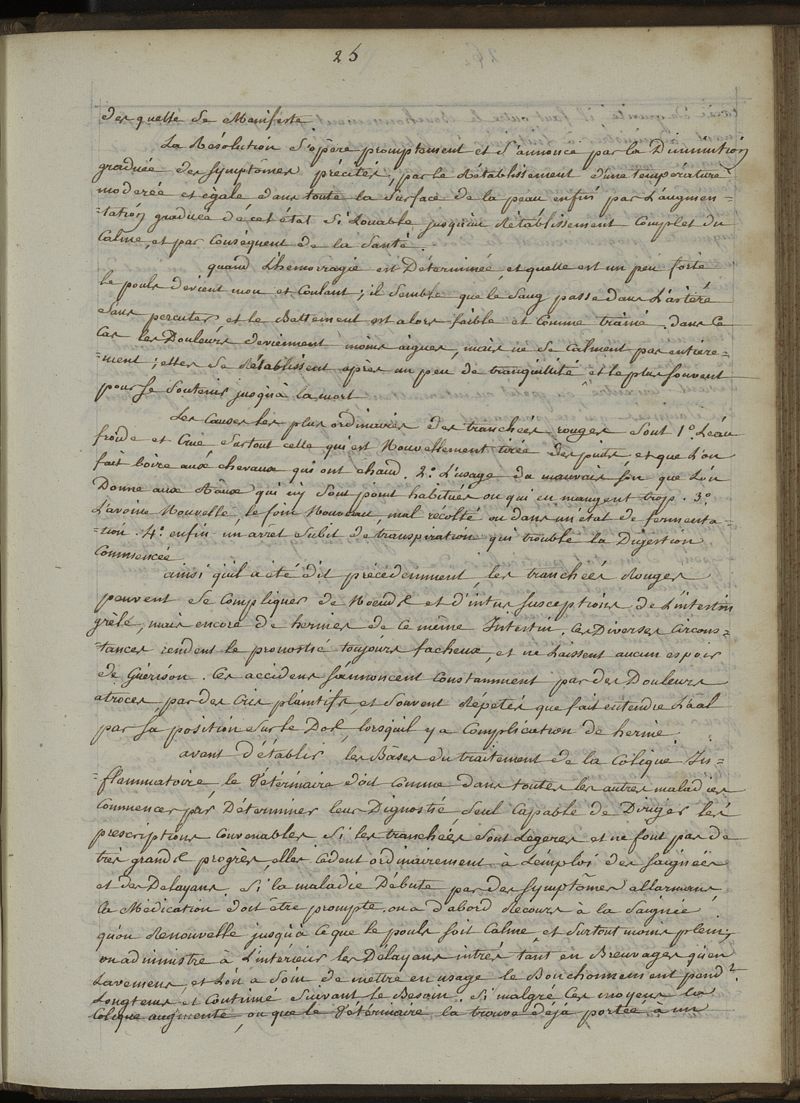 25
des quelle se Manifeste
La Résolution S'opère promptement et S'annonce par la Diminution
graduée des symptomes précités, par le Rétablissement d'une température
moderée et égale dans toute la Surface de la peau enfin par L'augmen-
-tation graduée de cet état Si Louable jusqu'au Rétablissement Complet du
Calme, et par Conséquent de la Santé.
quand L'hemorragie est Déterminée, et quelle est un peu forte
le pouls devient mou et Coulant; il Semble que le Sang passe dans L'artère
Sans percuter et le Battement est alors faible et Comme trainé. dans Ce
Cas les Douleurs deviennent moins aigues, mais ne se Calment pas entiere-
-ment; elles se Rétablissent après un peu de tranquillité et le plus Souvent
pour se Soutenir jusqu'à la mort
Les Causes les plus ordinaires des tranchées rouges Sont 1.° L'eau
froide et Crue Surtout celle qui est Nouvellement tirée des puits, et que L'on
fait boire aux chevaux qui ont chaud. 2.° L'usage du mauvais foin que L'on
Donne aux Baux qui n'y Sont point habitués ou qui en mangent trop. 3.°
L'avoine Nouvelle, le foin Nouveau, mal récolté ou dans un état de fermenta-
-tion. 4.° enfin un arrêt Subit de transpiration qui trouble la Digestion
Commencée
ainsi qu'il a été dit précédemment, les tranchées Rouges
peuvent Se Compliquer de Noeuds et d'intus susceptions de L'intestin
grèle, mais encore de hernies de Ce même Intestin. Ces Diverses Circons-
-tances rendent le pronostic toujours facheux, et ne Laissent aucun espoir
de Guérison. Ces accidens S'annoncent Constamment par des Douleurs
atroces, par des Cris plaintifs, et Souvent Répétés que fait entendre L'a.al
par Sa position Sur le Dos, lorsqu'il y a Complication de hernie.
avant d'établir les Bases du traitement de la Colique In-
-flammatoire, le Vétérinaire doit Comme dans toutes les autres maladies
Commencer par Déterminer leur Dignostic, Seul Capable de Diriger les
prescriptions Convenables. Si les tranchées Sont Légères et ne font pas de
très grands progrès, elles cèdent ordinairement à L'emploi des Saignées
et des Délayans. Si la maladie Débute par des Symptômes allarmans
la Médication doit être prompte, on a d'abord Recours à la Saignée
qu'on Renouvelle jusqu'à Ce que le pouls soit Calme et Surtout moins plein,
on administre à L'intérieur les Délayans intrés tant en Breuvages qu'en
Lavemens, et L'on a Soin de mettre en usage le Bouchonnement pend.t
Longtems et Continué Suivant le Besoin. Si malgré Ces moyens la
Colique augmente, ou que le Vétérinaire la trouve déjà portée à un